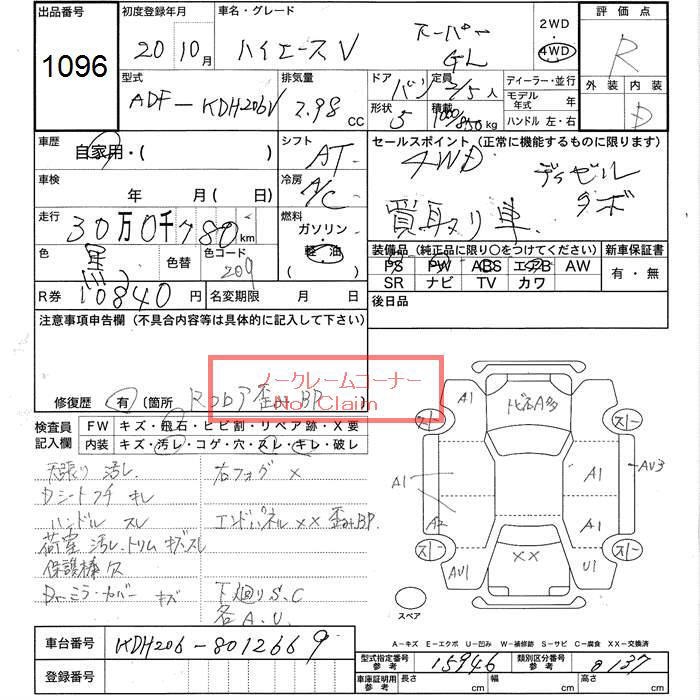 出品番号 初度登録年月 車名・グレード 2WD 評価点
1096 20 10月 ハイエースV スーパーGL 4WD R
型式 排気量 ドア 定員 ディーラー・並行 外装 内装
ADF-KDH206V 2.98 cc バン 2/5人 モデル年式 年 D
形状 5 積載 1000/850kg ハンドル 左・右
車歴 自家用・( ) シフト AT セールスポイント (正常に機能するものに限ります)
4WD ディーゼル
車検 年 月(日) 冷房 A/C ターボ
買取メリ車
走行 30万0千780km 燃料 ガソリン 軽油
色 黒 色替 色カラーコード 209
装備品 (純正品に限り〇をつけてください) 新車保証書
PS PW ABS エアB AW 有・無
SR ナビ TV カワ
R券 10840円 名変期限 月 日 後日品
注意事項申告欄 (不具合内容等は具体的に記入して下さい)
ノークレームコーナー
No Claim
修復歴 有 (箇所 歪みBP)
検査員記入欄 FW キズ・飛石・ヒビ割・リペア跡・X要
内装 キズ・汚レ・コゲ・穴・スレ・キレ・破レ
天張り 汚レ 右フォグ ×
Dシートフチ キレ
ハンドル スレ エンドパネル×× 歪みBP
荷室 汚レ・トリム キズ・スレ
保護棒欠
Drミラーカバー キズ 下廻りS.C
各A.U.
A1 トビ石A多
スノー スノー
A1 A1 AU3
A2 A1
スノー スノー
AU1 ×× U1
スペア
A-キズ E-エクボ U-凹み W-補修跡 S-サビ C-腐食 XX-交換済
車台番号 KDH206-8012669
型式指定番号 参考 15946 類別区分番号 参考 0137
登録番号 車庫証明用 参考 長さ cm 幅 cm 高さ cm